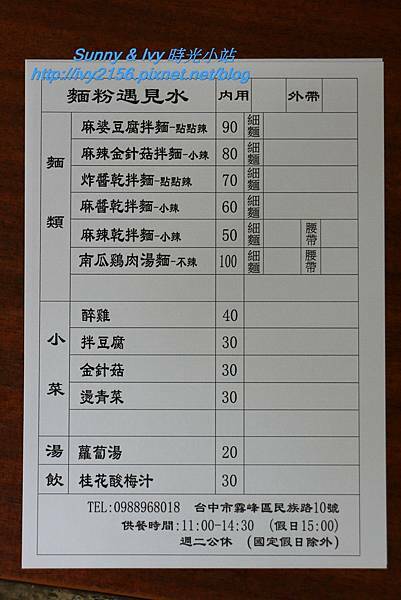 Sunny & Ivy 時光小站
http://ivy2156.pixnet.net/blog
麵粉遇見水 內用 外帶
麵類
麻婆豆腐拌麵-點點辣 90 細麵
麻辣金針菇拌麵-小辣 80 細麵
炸醬乾拌麵-點點辣 70 細麵
麻醬乾拌麵-小辣 60 細麵
麻辣乾拌麵-小辣 50 細麵 腰帶
南瓜鷄肉湯麵-不辣 100 細麵 腰帶
小菜
醉雞 40
拌豆腐 30
金針菇 30
燙青菜 30
湯 蘿蔔湯 20
飲 桂花酸梅汁 30
TEL:0988968018 台中市霧峰區民族路10號
供餐時間:11:00-14:30 (假日15:00)
週二公休 (國定假日除外)